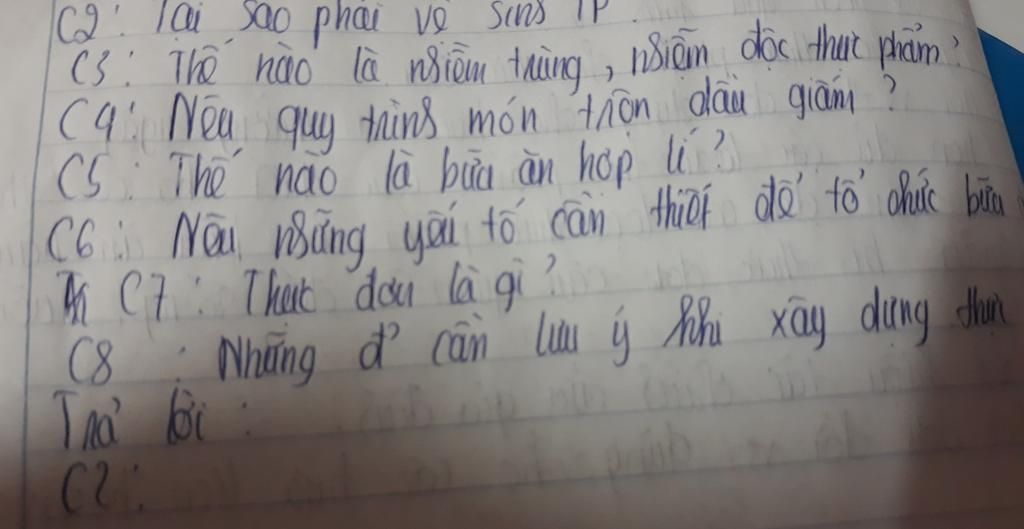 C2: Tại sao phải vệ sinh TP
C3: Thế nào là nhiễm trùng, nhiễm độc thực phẩm?
C4: Nêu quy trình món trộn dầu giấm?
C5: Thế nào là bữa ăn hợp lí?
C6: Nêu những yếu tố cần thiết để tổ chức bữa
C7: Thực đơn là gì?
C8: Những đ' cần lưu ý khi xây dựng thực
Trả lời:
C2: